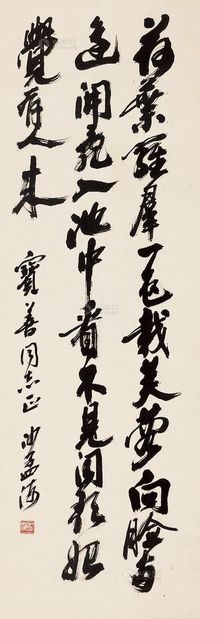 荷葉羅裙一色裁芙蓉向臉兩
邊開亂入池中看不見聞歌始
覺有人来
寶善同志正 沙孟海